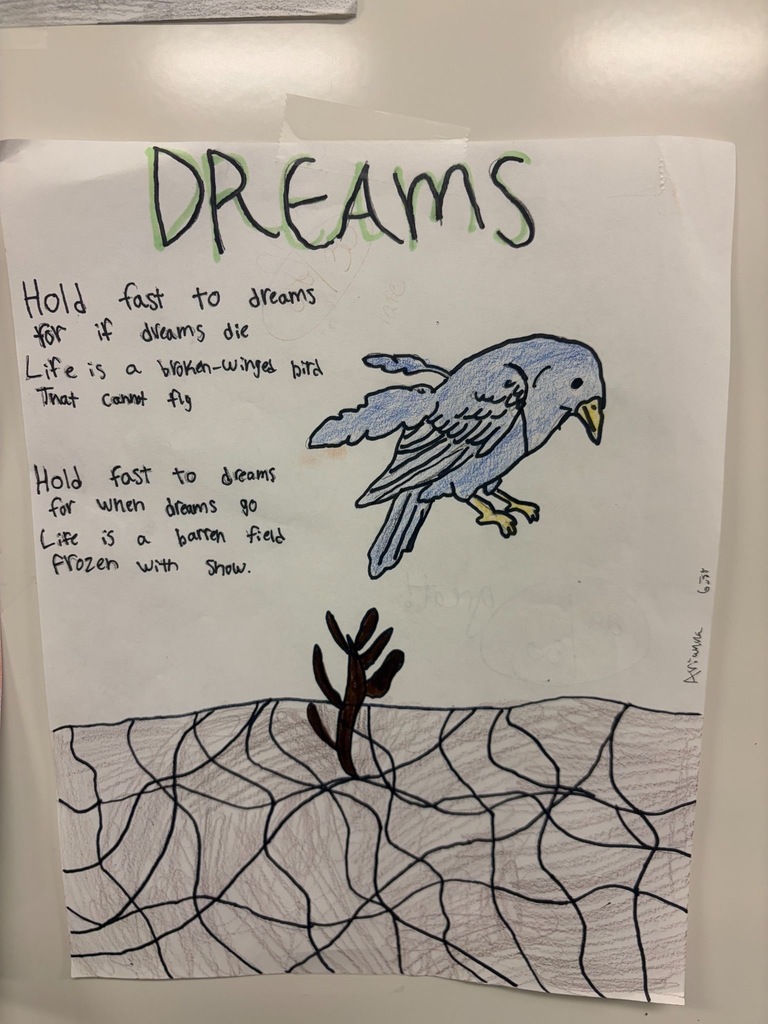 DREAMS
Hold fast to dreams
for if dreams die
Life is a broken-winged bird
That cannot fly
Hold fast to dreams
for when dreams go
Life is a barren field
frozen with snow.
Arianna